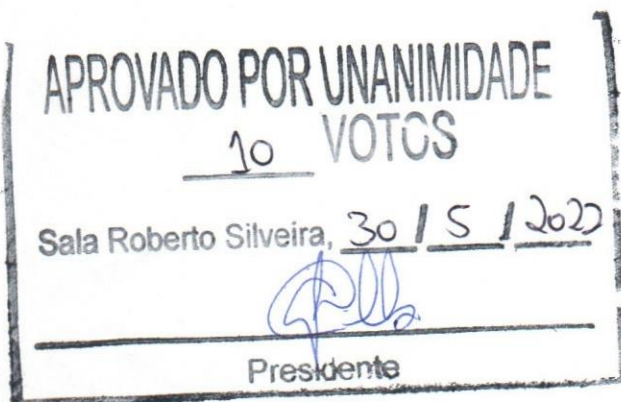 APROVADO POR UNANIMIDADE
10 VOTOS
Sala Roberto Silveira, 30 / 5 / 2022
Presidente